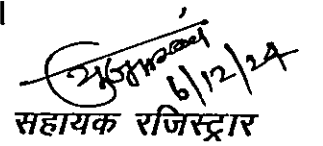 6/12/24
सहायक रजिस्ट्रार